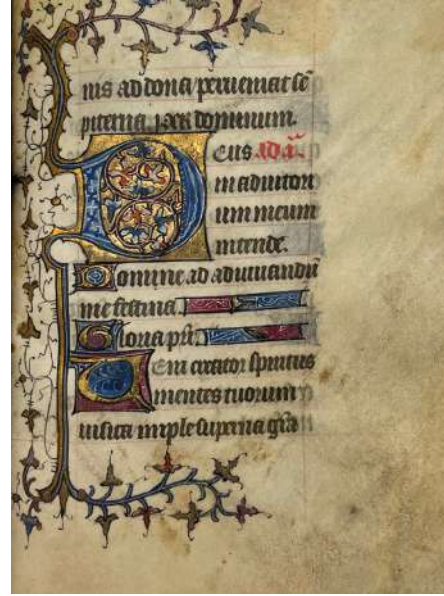 nis ad dona perveniat se͂
piterna. per dominum.
Deus ad i.
in adiutori
um meum
intende.
Domine ad adiuvandũ
me festina.
Gloria pr̃i.
Veni creator spiritus
mentes tuorum
visita imple superna gr̃a